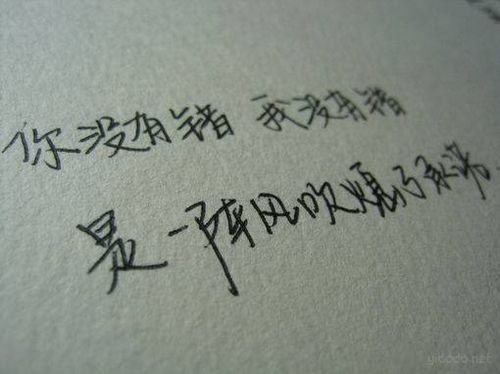 你没有错 我没有错
是一阵风吹熄了承诺.
yidodo.net